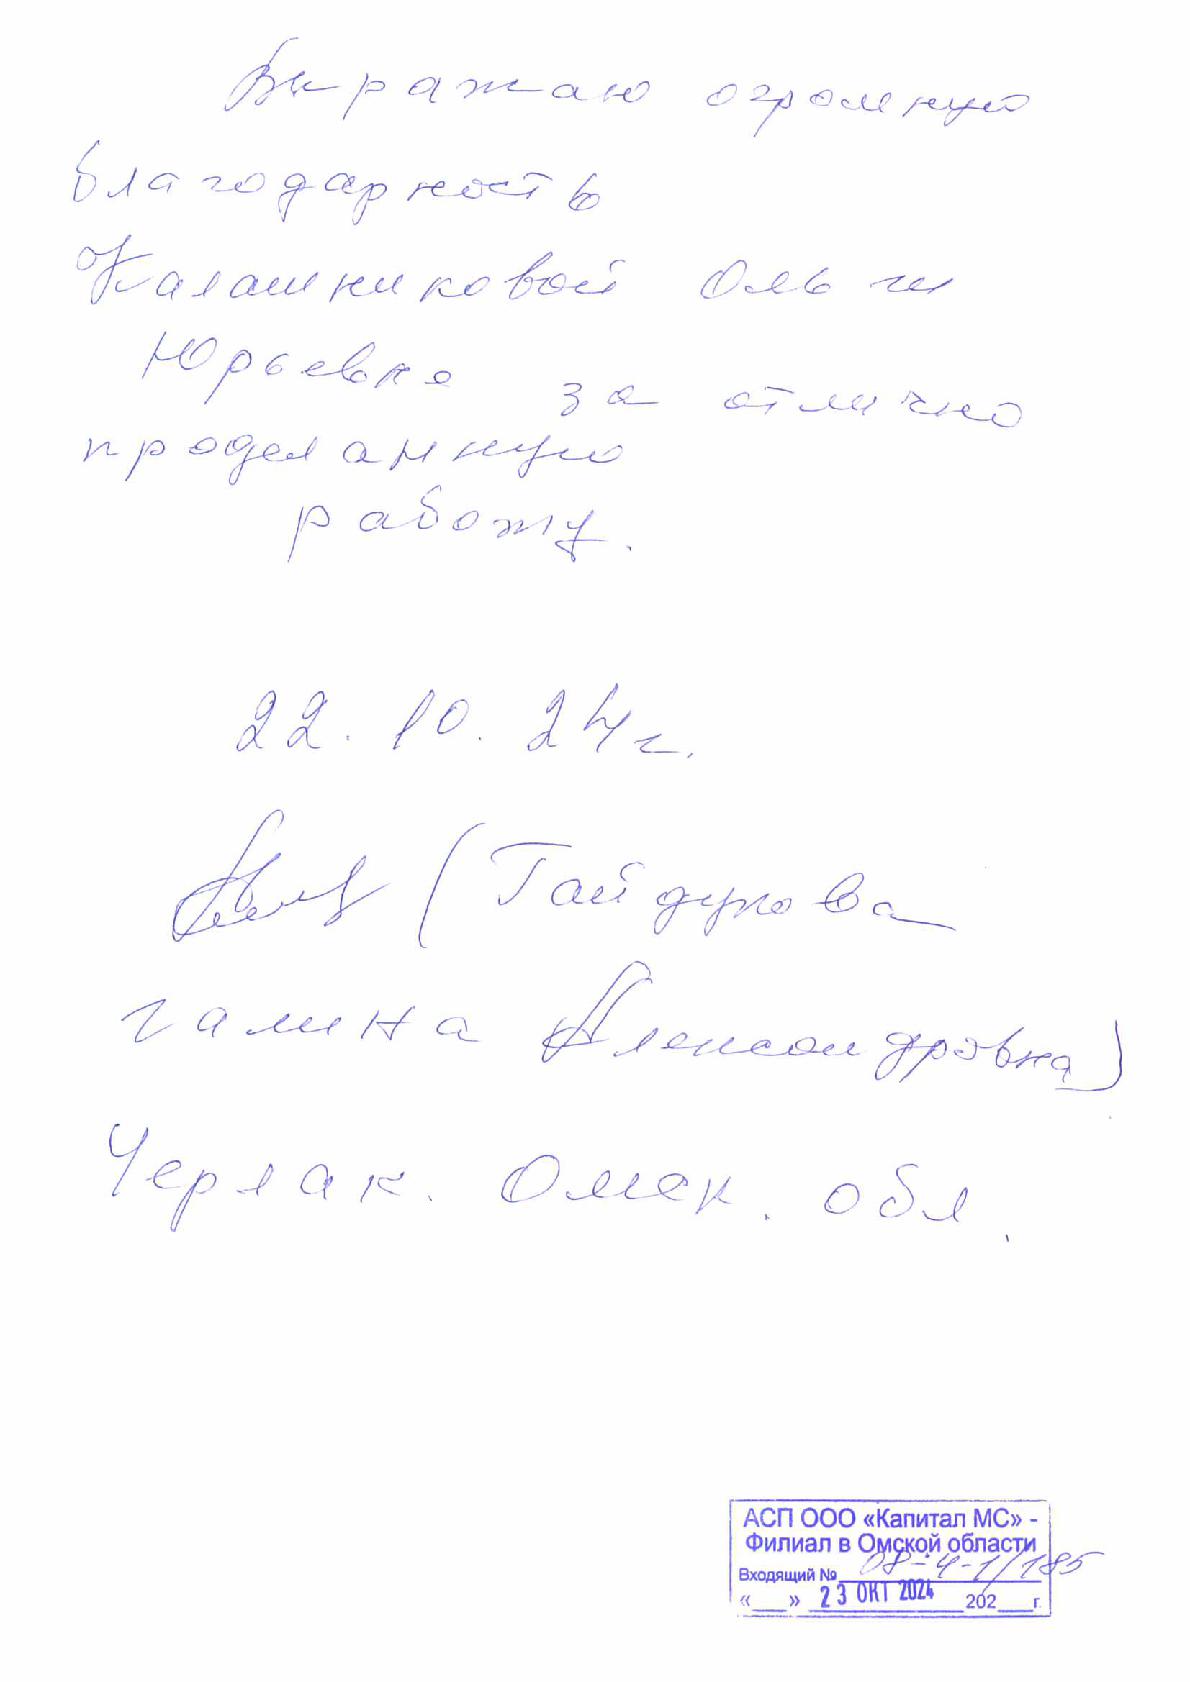 Выражаю огромную
благодарность
Калашниковой Ольги
Юрьевне за отлично
проделанную
работу.
22.10.24г.
(Гайдукова
Галина Александровна)
Черлак. Омск. обл.
АСП ООО «Капитал МС» -
Филиал в Омской области
Входящий № 08-4-1/185
«___» 23 ОКТ 2024 202___г.